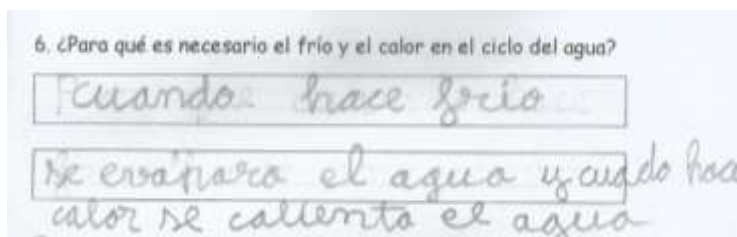 6. ¿Para qué es necesario el frío y el calor en el ciclo del agua?
cuando hace frio
se evapara el agua y cuado hace
calor se calienta el agua